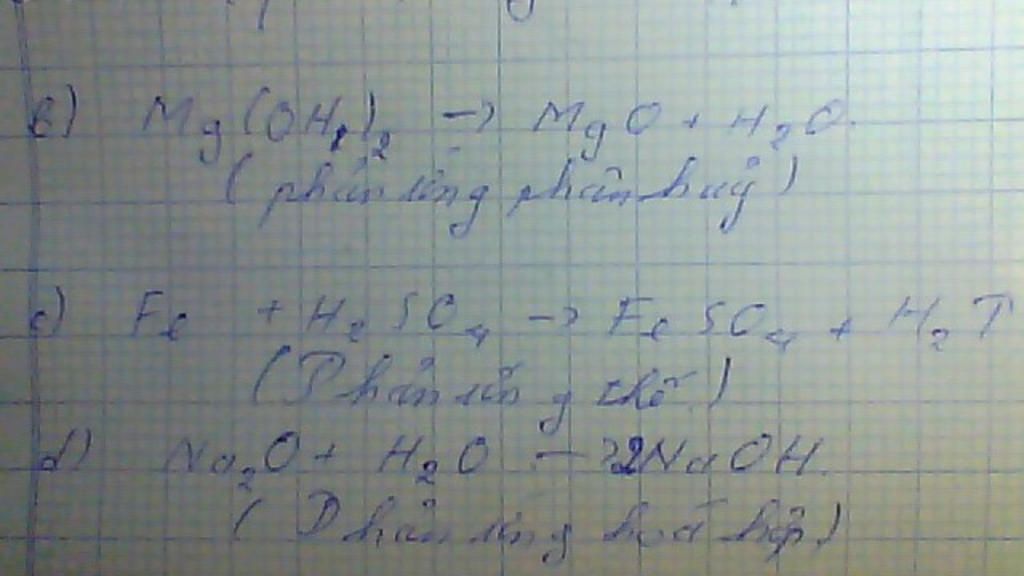 b) Mg(OH)₂ → MgO + H₂O.
(phản ứng phân huỷ)
c) Fe + H₂SO₄ → FeSO₄ + H₂↑
(Phản ứng thế)
d) Na₂O + H₂O → 2NaOH.
(Phản ứng hoá hợp)